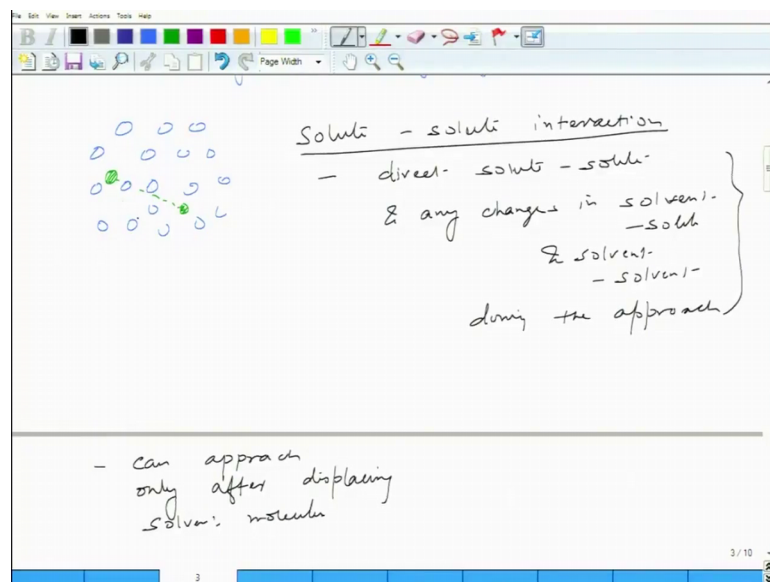 File Edit View Insert Actions Tools Help
B I
Page Width
Solute - solute interaction
- direct solute - solute
& any changes in solvent
- solute
& solvent
- solvent
during the approach
- can approach
only after displacing
solvent molecules
3 / 10
3